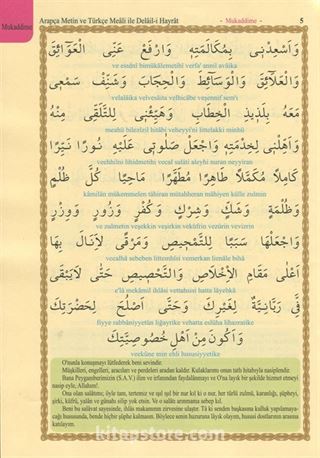 Mukaddime
Arapça Metin ve Türkçe Meâli ile Delâil-i Hayrât
- Mukaddime -
5
وَاَسْعِدْنٖي بِمُكَالَمَتِهٖ وَارْفَعْ عَنِّى الْعَوَائِقَ
ve esıdni bimükâlemetihi verfa' annil avâika
وَالْعَلَائِقَ وَالْوَسَائِطَ وَالْحِجَابَ وَشَنِّفْ سَمْعٖى
velalâika velvesâita velhicâbe veşennif sem'i
مَعَهُ بِلَذٖيذِ الْخِطَابِ وَهَيِّئْنٖى لِلتَّلَقّٖى مِنْهُ
meahü bilezîzil hitâbi veheyyi'ni littelakki minhü
وَاَهِّلْنٖى لِخِدْمَتِهٖ وَاجْعَلْ صَلٰوتٖى عَلَيْهِ نُورًا نَيِّرًا
vechhilni lihidmetihi vecal salâti aleyhi nuran neyyiran
كَامِلًا مُكَمَّلًا طَاهِرًا مُطَهَّرًا مَاحِيًا كُلَّ ظُلْمٍ
kâmilân mükemmelen tâhiran mütahheran mâhiyen külle zulmin
وَظُلْمَةٍ وَشَكٍّ وَشِرْكٍ وَكُفْرٍ وَزُورٍ وَوِزْرٍ
ve zulmetin veşekkin veşirkin veküfrin vezûrin vevizrin
وَاجْعَلْهَا سَبَبًا لِلتَّمْحٖيصِ وَمَرْقًى لِاَنَالَ بِهَا
vecalhâ sebeben littemhîsi vemerkan lienâle bihâ
اَعْلٰى مَقَامِ الْاِخْلَاصِ وَالتَّخْصٖيصِ حَتّٰى لَايَبْقٰى
e'lâ mekâmil ihlâsi vettahsisi hattâ lâyebkâ
فِىَّ رَبَّانِيَّةٌ لِغَيْرِكَ وَحَتّٰى اَصْلُحَ لِحَضْرَتِكَ
fiyye rabbâniyyetün liğayrike vehatta eslüha lihazratike
وَاَكُونَ مِنْ اَهْلِ خُصُوصِيَّتِكَ
veekûne min ehli hususiyyetike
O'nunla konuşmayı lütfederek beni sevindir.
Müşkilleri, engelleri, aracıları ve perdeleri aradan kaldır. Kulaklarımı onun tatlı hitabıyla nasiplendir.
Bana Peygamberimizin (S.A.V.) ilim ve irfanından faydalanmayı ve O'na layık bir şekilde hizmet etmeyi
nasip eyle, Allahım!.
Ona olan salâtımı; öyle tam, tertemiz ve ışıl ışıl bir nur kıl ki o nur, her türlü zulmü, karanlığı, şüpheyi,
şirki, küfrü, yalan ve günahı silip yok etsin. Ve o salâtı arınmama sebep kıl.
Beni bu salâvat sayesinde, ihlâs makamının zirvesine ulaştır. Tâ ki senden başkasına kulluk yapılamaya-
cağı hususunda, bende hiçbir şüphe kalmasın. Böylece senin huzuruna lâyık olayım, hususi dostlarının arasına
katılayım.
kitapstore.com